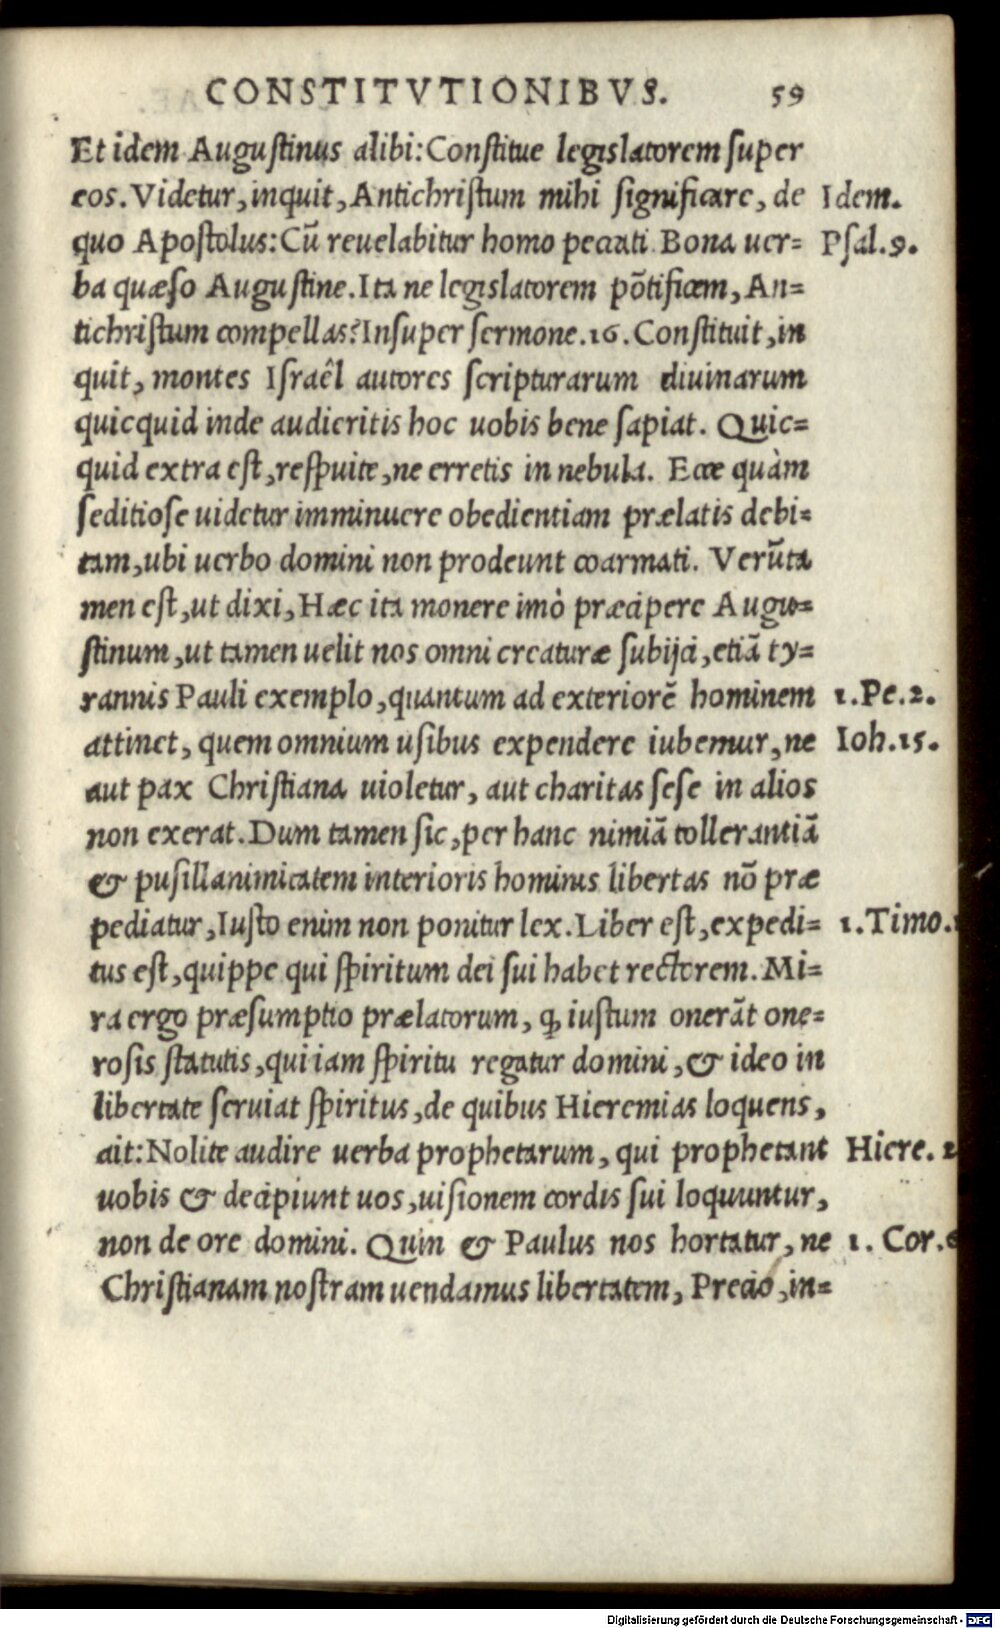 CONSTITVTIONIBVS. 59
Et idem Augustinus alibi: Constitue legislatorem super
eos. Videtur, inquit, Antichristum mihi significare, de Idem.
quo Apostolus: Cũ reuelabitur homo peccati. Bona uer= Psal.9.
ba quæso Augustine. Ita ne legislatorem põtificem, An=
tichristum compellas? Insuper sermone.16. Constituit, in
quit, montes Israêl autores scripturarum diuinarum
quicquid inde audieritis hoc uobis bene sapiat. Quic=
quid extra est, respuite, ne erretis in nebula. Ecce quàm
seditiose uidetur imminuere obedientiam prælatis debi=
tam, ubi uerbo domini non prodeunt coarmati. Verũta
men est, ut dixi, Hæc ita monere imò præcipere Augu=
stinum, ut tamen uelit nos omni creaturæ subijci, etiã ty=
rannis Pauli exemplo, quantum ad exteriorẽ hominem 1.Pe.2.
attinet, quem omnium usibus expendere iubemur, ne Ioh.15.
aut pax Christiana uioletur, aut charitas sese in alios
non exerat. Dum tamen sic, per hanc nimiã tollerantiã
& pusillanimitatem interioris hominis libertas nõ præ
pediatur, Iusto enim non ponitur lex. Liber est, expedi= 1.Timo.1
tus est, quippe qui spiritum dei sui habet rectorem. Mi=
ra ergo præsumptio prælatorum, ꝙ iustum onerãt one=
rosis statutis, qui iam spiritu regatur domini, & ideo in
libertate seruiat spiritus, de quibus Hieremias loquens,
ait: Nolite audire uerba prophetarum, qui prophetant Hiere. 2
uobis & decipiunt uos, uisionem cordis sui loquuntur,
non de ore domini. Quin & Paulus nos hortatur, ne 1. Cor.6
Christianam nostram uendamus libertatem, Precio, in=
Digitalisierung gefördert durch die Deutsche Forschungsgemeinschaft - DFG